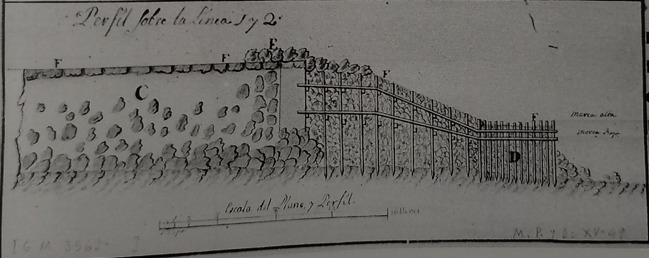 Perfil sobre la Linea 1 y 2.
E
F F F
C
F
marea alta
marea baja
D
Escala del Plano, y Perfil.
M. P. y D. XV-49